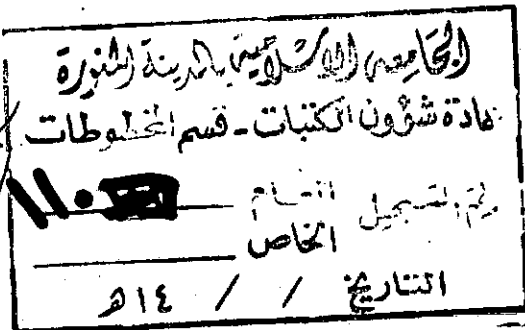 الجامعة الإسلامية بالمدينة المنورة
عمادة شؤون المكتبات - قسم المخطوطات
رقم التسجيل العام ١١٠
الخاص
التاريخ / / ١٤هـ